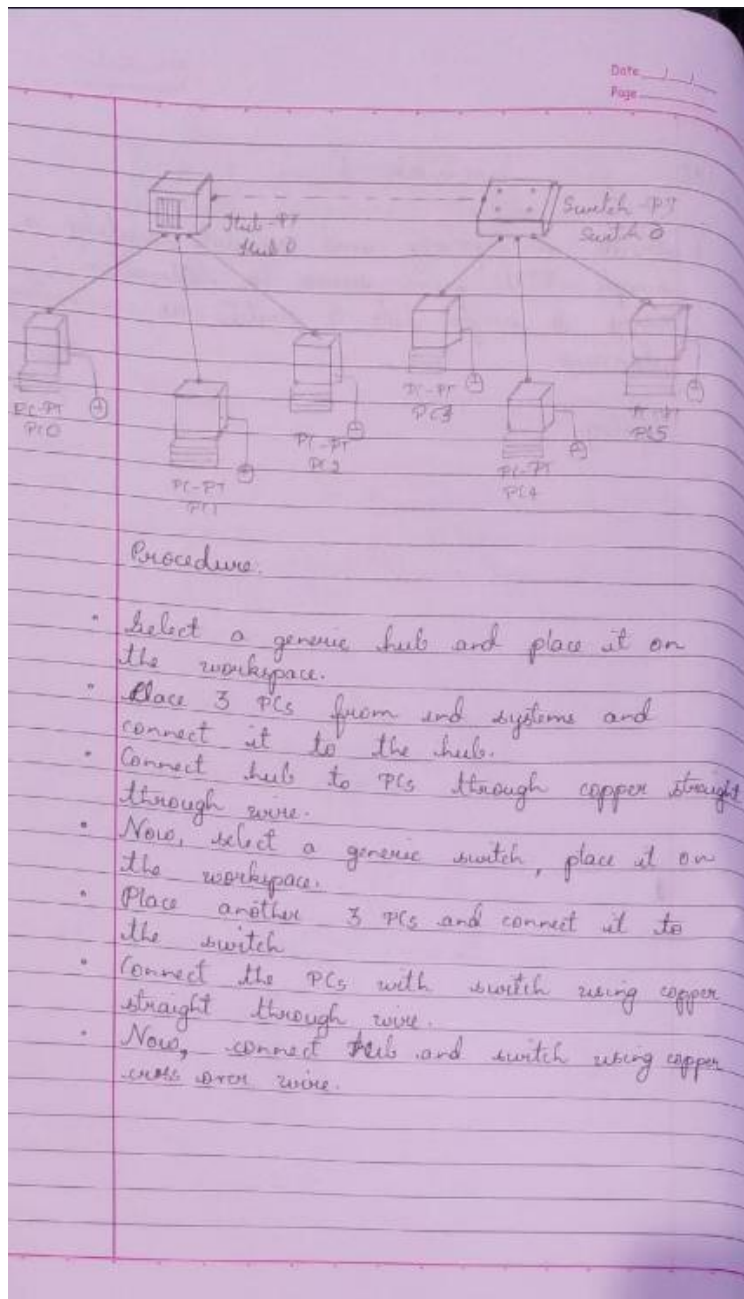 Date / /
Page
Hub-PT
Hub 0
Switch-PT
Switch 0
PC-PT
PC0
PC-PT
PC1
PC-PT
PC2
PC-PT
PC3
PC-PT
PC4
PC-PT
PC5
Procedure.
• Select a generic hub and place it on
the workspace.
• Place 3 PCs from end systems and
connect it to the hub.
• Connect hub to PCs through copper straight
through wire.
• Now, select a generic switch, place it on
the workspace.
• Place another 3 PCs and connect it to
the switch
• Connect the PCs with switch using copper
straight through wire.
• Now, connect hub and switch using copper
cross over wire.